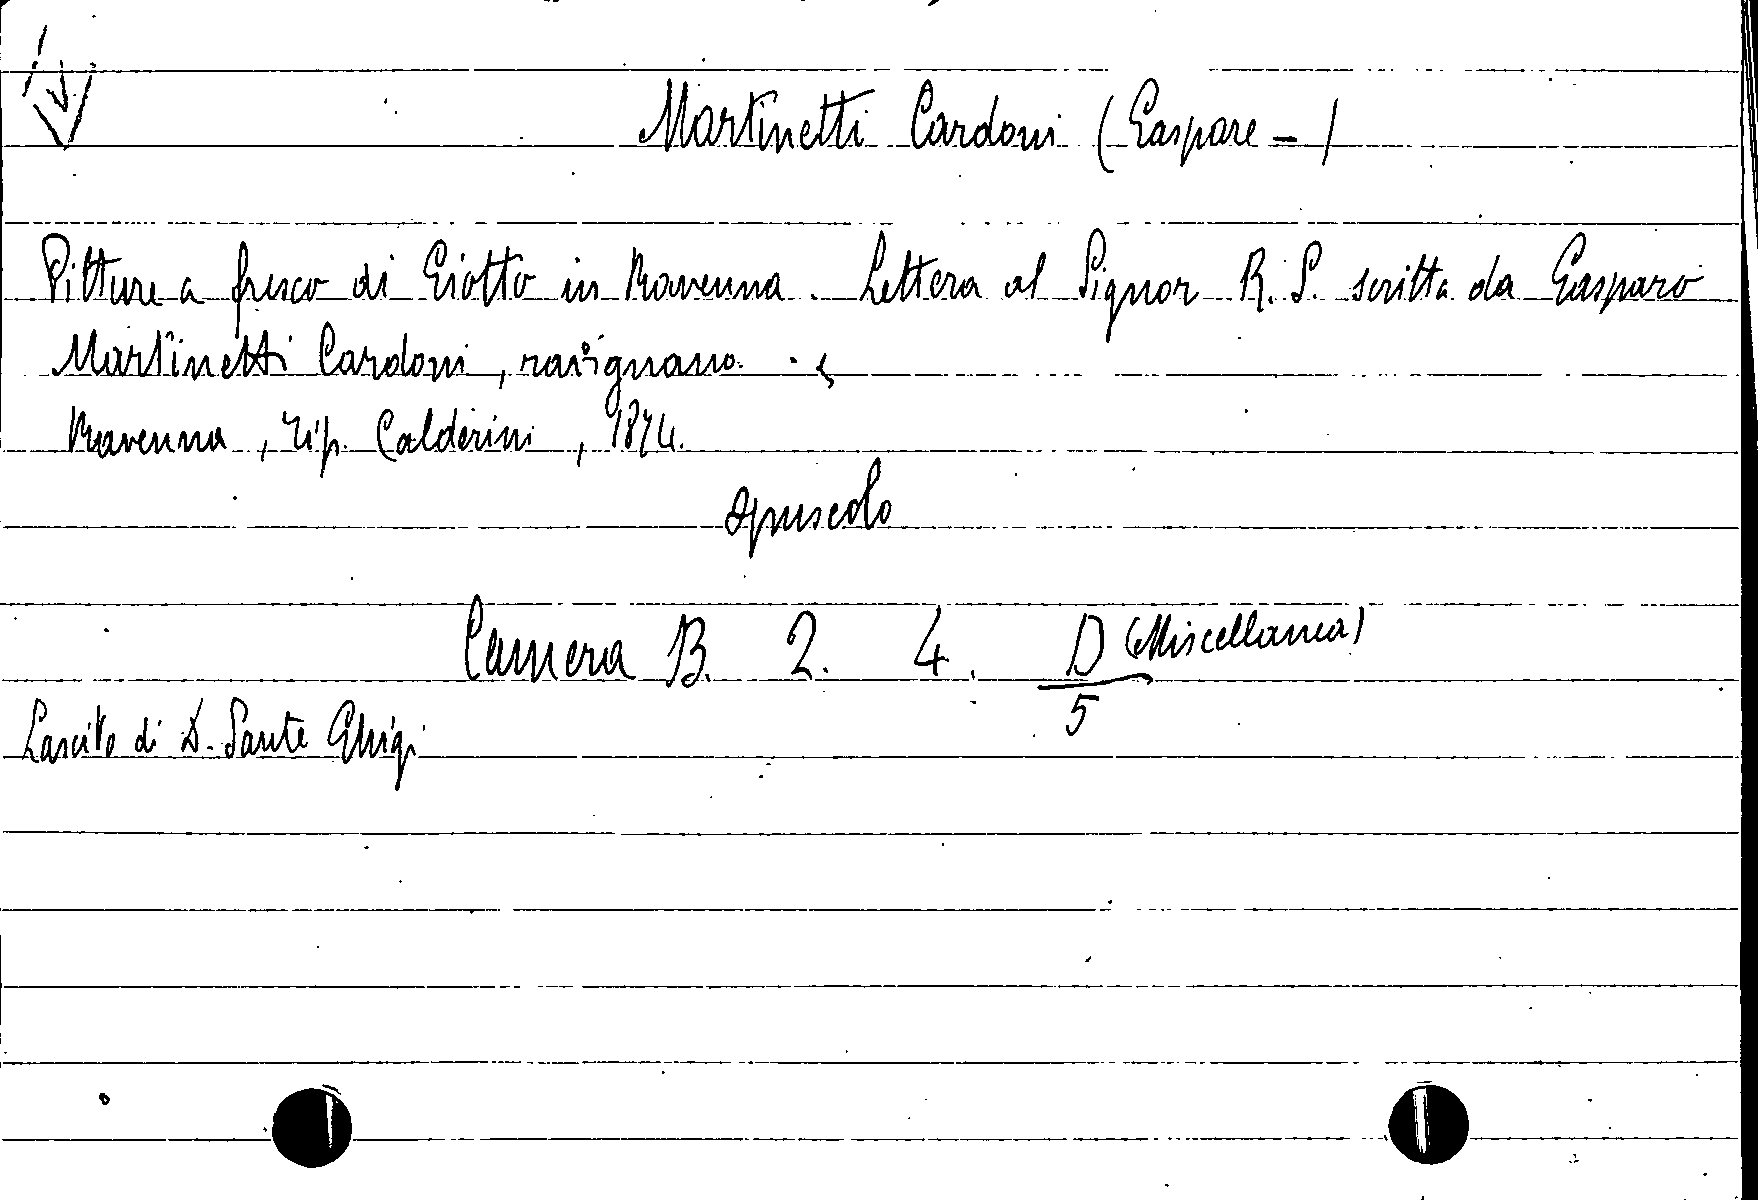 Martinetti Cardoni (Gaspare - )
Pitture a fresco di Giotto in Ravenna. Lettera al Signor R. S. scritta da Gasparo
Martinetti Cardoni, ravignano.
Ravenna, tip. Calderini, 1874.
opuscolo
Camera B. 2. 4. D (Miscellanea)
5
Lascito di D. Sante Ghigi